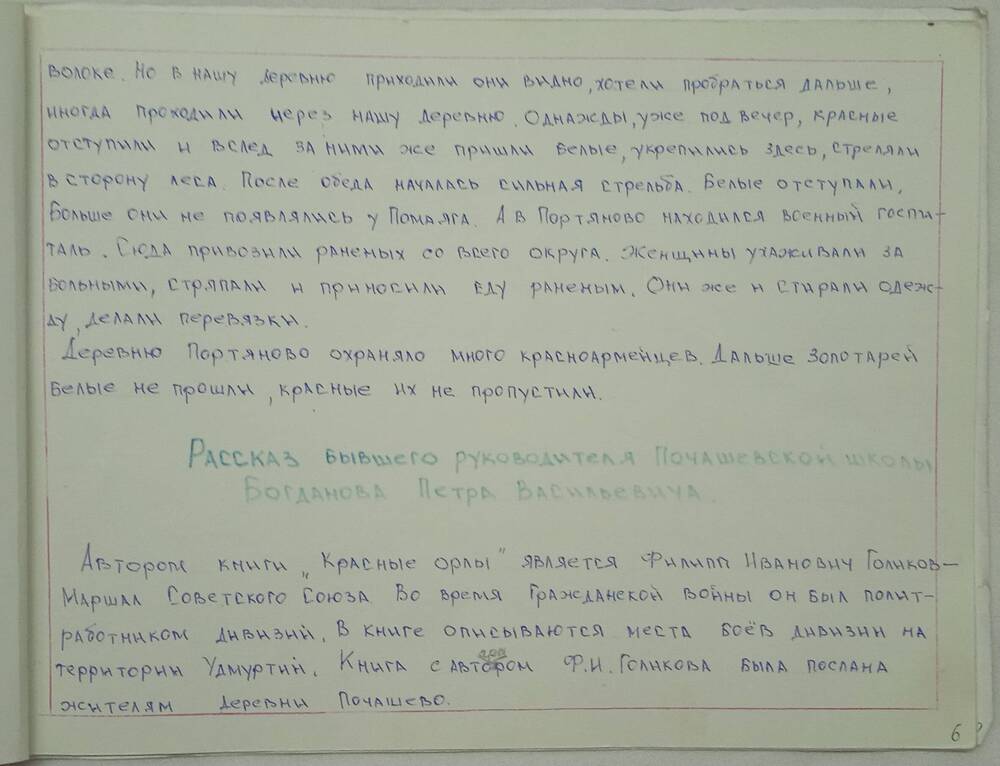 волоке. Но в нашу деревню приходили они видно, хотели пробраться дальше,
иногда проходили через нашу деревню. Однажды, уже под вечер, красные
отступили и вслед за ними же пришли белые, укрепились здесь, стреляли
в сторону леса. После обеда началась сильная стрельба. Белые отступали,
больше они не появлялись у Помаяга. А в Портяново находился военный госпи-
таль. Сюда привозили раненых со всего округа. Женщины ухаживали за
больными, стряпали и приносили еду раненым. Они же и стирали одеж-
ду, делали перевязки.
Деревню Портяново охраняло много красноармейцев. Дальше Золотарей
белые не прошли, красные их не пропустили.
Рассказ бывшего руководителя Почашевской школы
Богданова Петра Васильевича.
Автором книги „Красные орлы" является Филипп Иванович Голиков—
Маршал Советского Союза. Во время Гражданской войны он был полит-
работником дивизий. В книге описываются места боёв дивизии на
территории Удмуртий. Книга с автором Ф.И. Голикова была послана
жителям деревни Почашево.
6